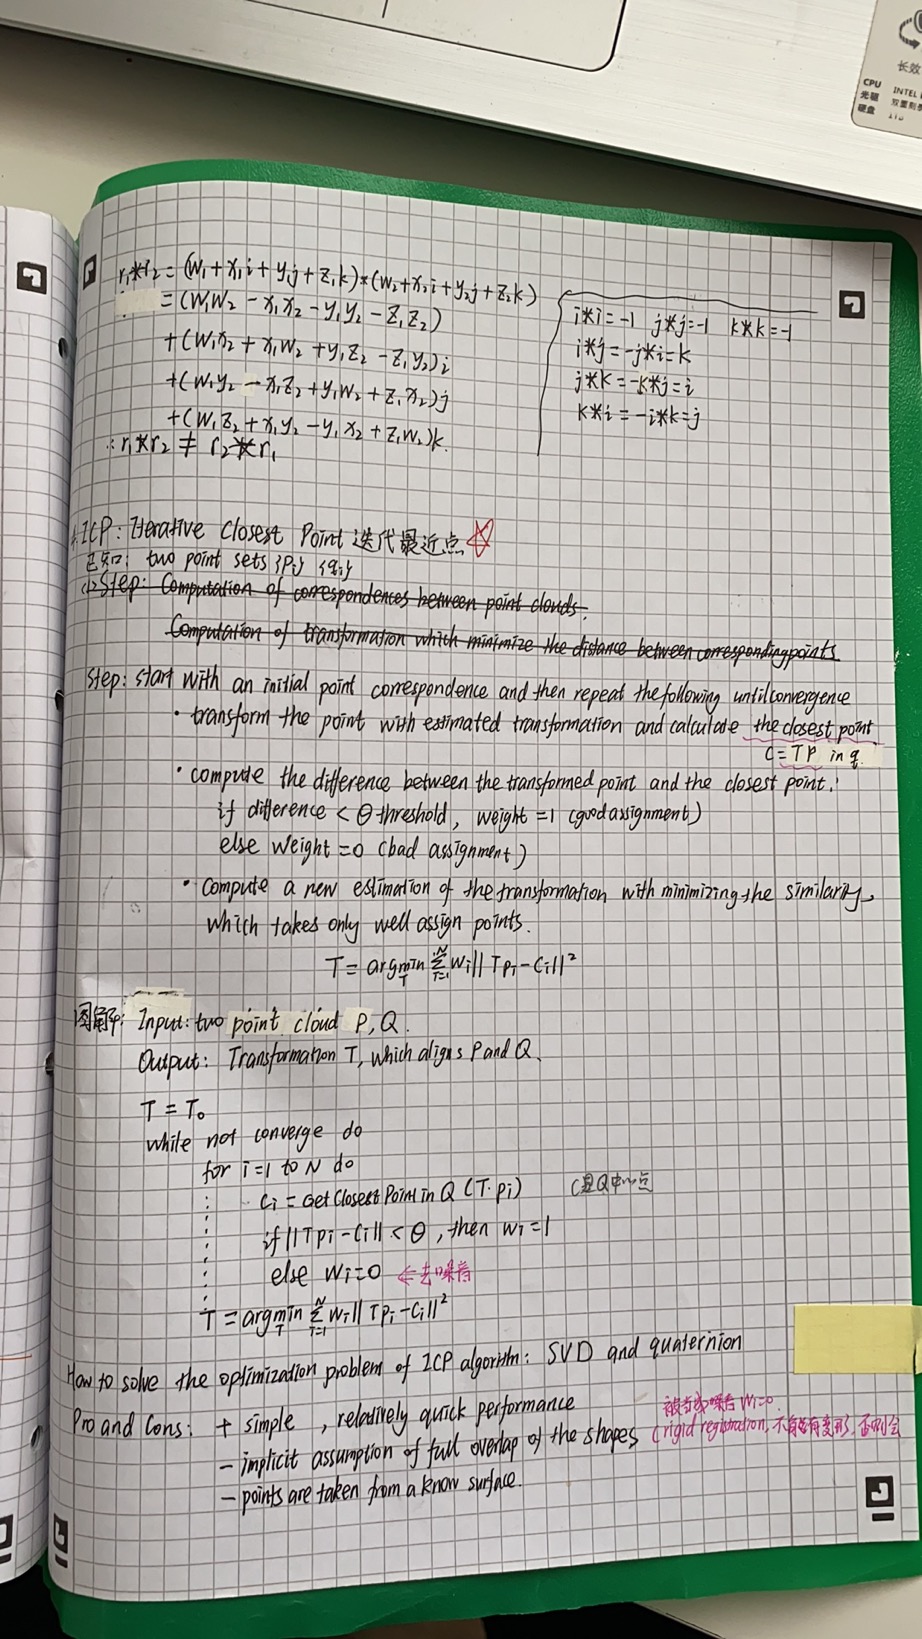 长效
CPU
光驱
硬盘
INTEL
r₁*r₂ = (w₁+x₁i+y₁j+z₁k)*(w₂+x₂i+y₂j+z₂k)
= (w₁w₂ - x₁x₂ - y₁y₂ - z₁z₂)
+(w₁x₂ + x₁w₂ + y₁z₂ - z₁y₂)i
+(w₁y₂ - x₁z₂ + y₁w₂ + z₁x₂)j
+(w₁z₂ + x₁y₂ - y₁x₂ + z₁w₂)k
∴ r₁*r₂ ≠ r₂*r₁
i*i=-1 j*j=-1 k*k=-1
i*j=-j*i=k
j*k=-k*j=i
k*i=-i*k=j
ICP: Iterative Closest Point 迭代最近点
已知: two point sets {Pi} {qi}
Step: Computation of correspondences between point clouds.
Computation of transformation which minimize the distance between corresponding points
Step: start with an initial point correspondence and then repeat the following until convergence
· transform the point with estimated transformation and calculate the closest point
C=TP in q.
· compute the difference between the transformed point and the closest point:
if difference < θ threshold, weight=1 (good assignment)
else weight=0 (bad assignment)
· compute a new estimation of the transformation with minimizing the similarity,
which takes only well assign points.
T = argmin_T Σ_{i=1}^{N} wi||Tpi-Ci||²
图解: Input: two point cloud P,Q.
Output: Transformation T, which aligns P and Q.
T=T₀
while not converge do
for i=1 to N do
Ci = Get Closest Point in Q (T·pi) C是Q中一点
if ||Tpi-Ci|| < θ, then wi=1
else wi=0 ← 去噪音
T = argmin_T Σ_{i=1}^{N} wi||Tpi-Ci||²
How to solve the optimization problem of ICP algorithm: SVD and quaternion
Pro and Cons: + simple, relatively quick performance
被当成噪音 wi=0.
- implicit assumption of full overlap of the shapes (rigid registration, 不能有变形, 否则会
- points are taken from a know surface.